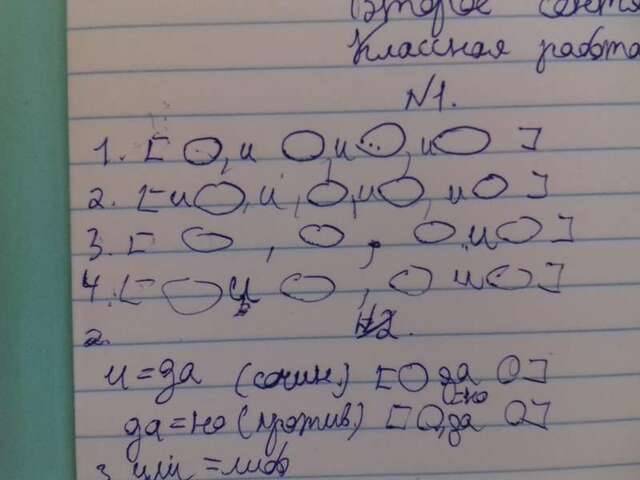 Второе сентя
Классная работа
№1.
1. [ O, и O, и O, и O ]
2. [ и O, и O, и O, и O ]
3. [ O , O , O и O ]
4. [ O и O , O и O ]
2.
и = да (сочин.) [ O да O ]
да = но (против.) [ O, да O ]
=но
3 или = либо